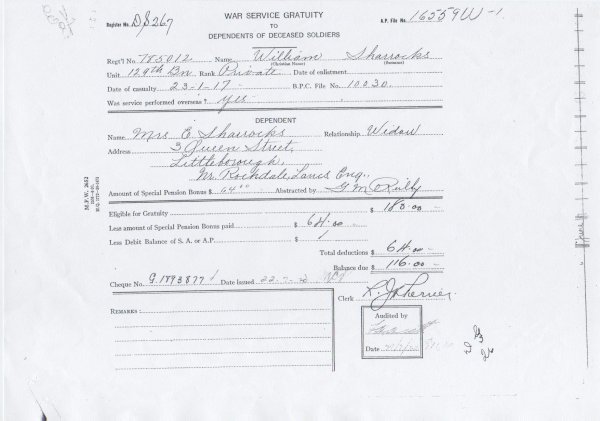 Register No. DS267
WAR SERVICE GRATUITY
TO
DEPENDENTS OF DECEASED SOLDIERS
A.P. File No. 16559W-1
Regt'l No. 785012 Name William Sharrocks
(Christian Names) (Surname)
Unit 129th Bn. Rank Private Date of enlistment
Date of casualty 23-1-17 B.P.C. File No. 10030.
Was service performed overseas? yes
DEPENDENT
Name Mrs E Sharrocks Relationship Widow
Address 3 Queen Street,
Littleborough,
Nr. Rochdale, Lancs Eng.,
Amount of Special Pension Bonus $ 64.00 Abstracted by
M.F.W. 2652
Eligible for Gratuity $ 180.00
Less amount of Special Pension Bonus paid $ 64.00
Less Debit Balance of S. A. or A.P. $
Total deductions $ 64.00
Balance due $ 116.00
Cheque No. Date Issued
Clerk
REMARKS:
Audited by
Date